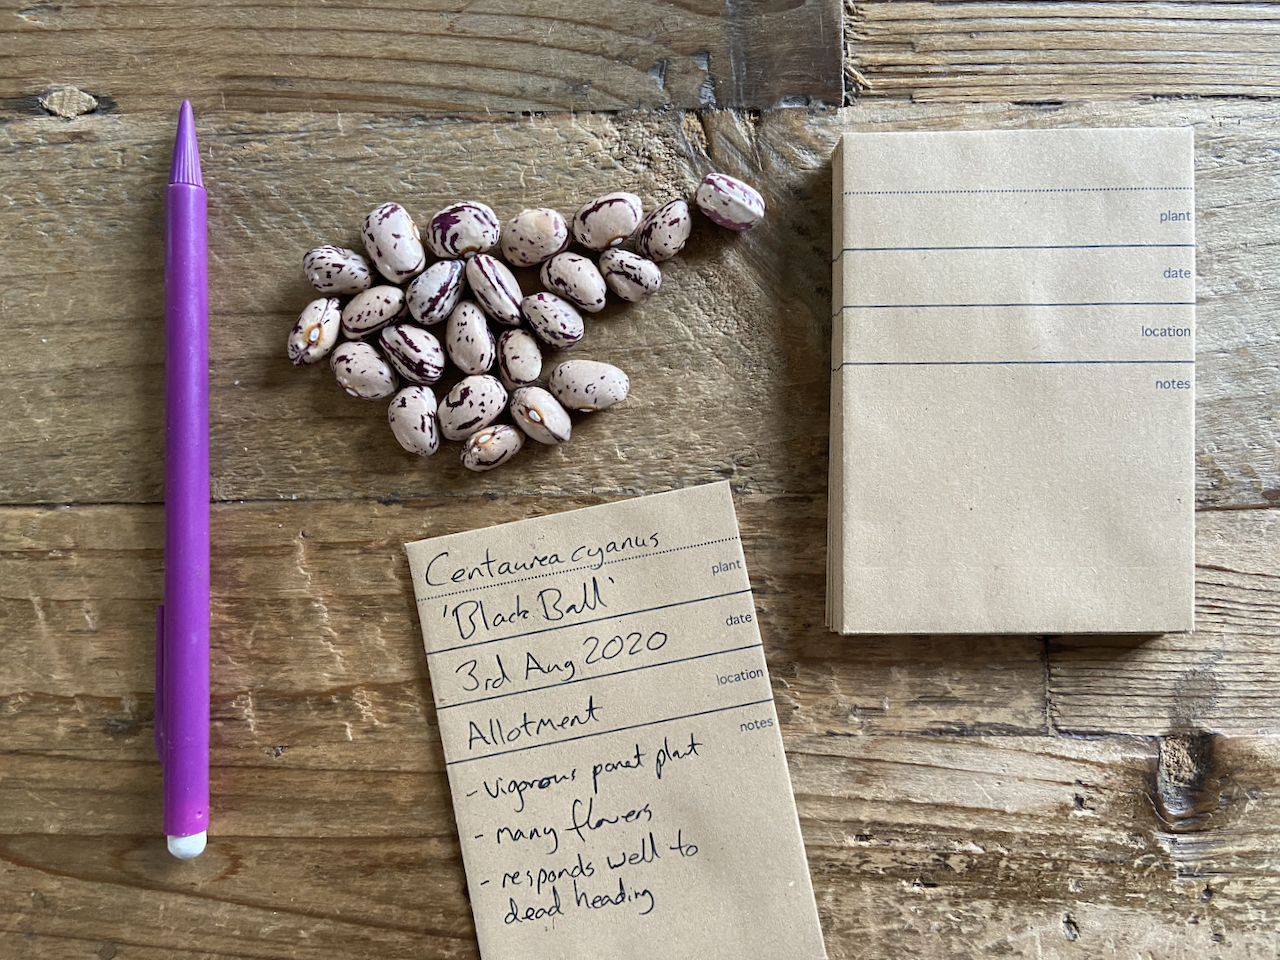 plant
date
location
notes
Centaurea cyanus
'Black Ball'
plant
3rd Aug 2020
date
Allotment
location
notes
- vigorous paret plant
- many flowers
- responds well to
dead heading